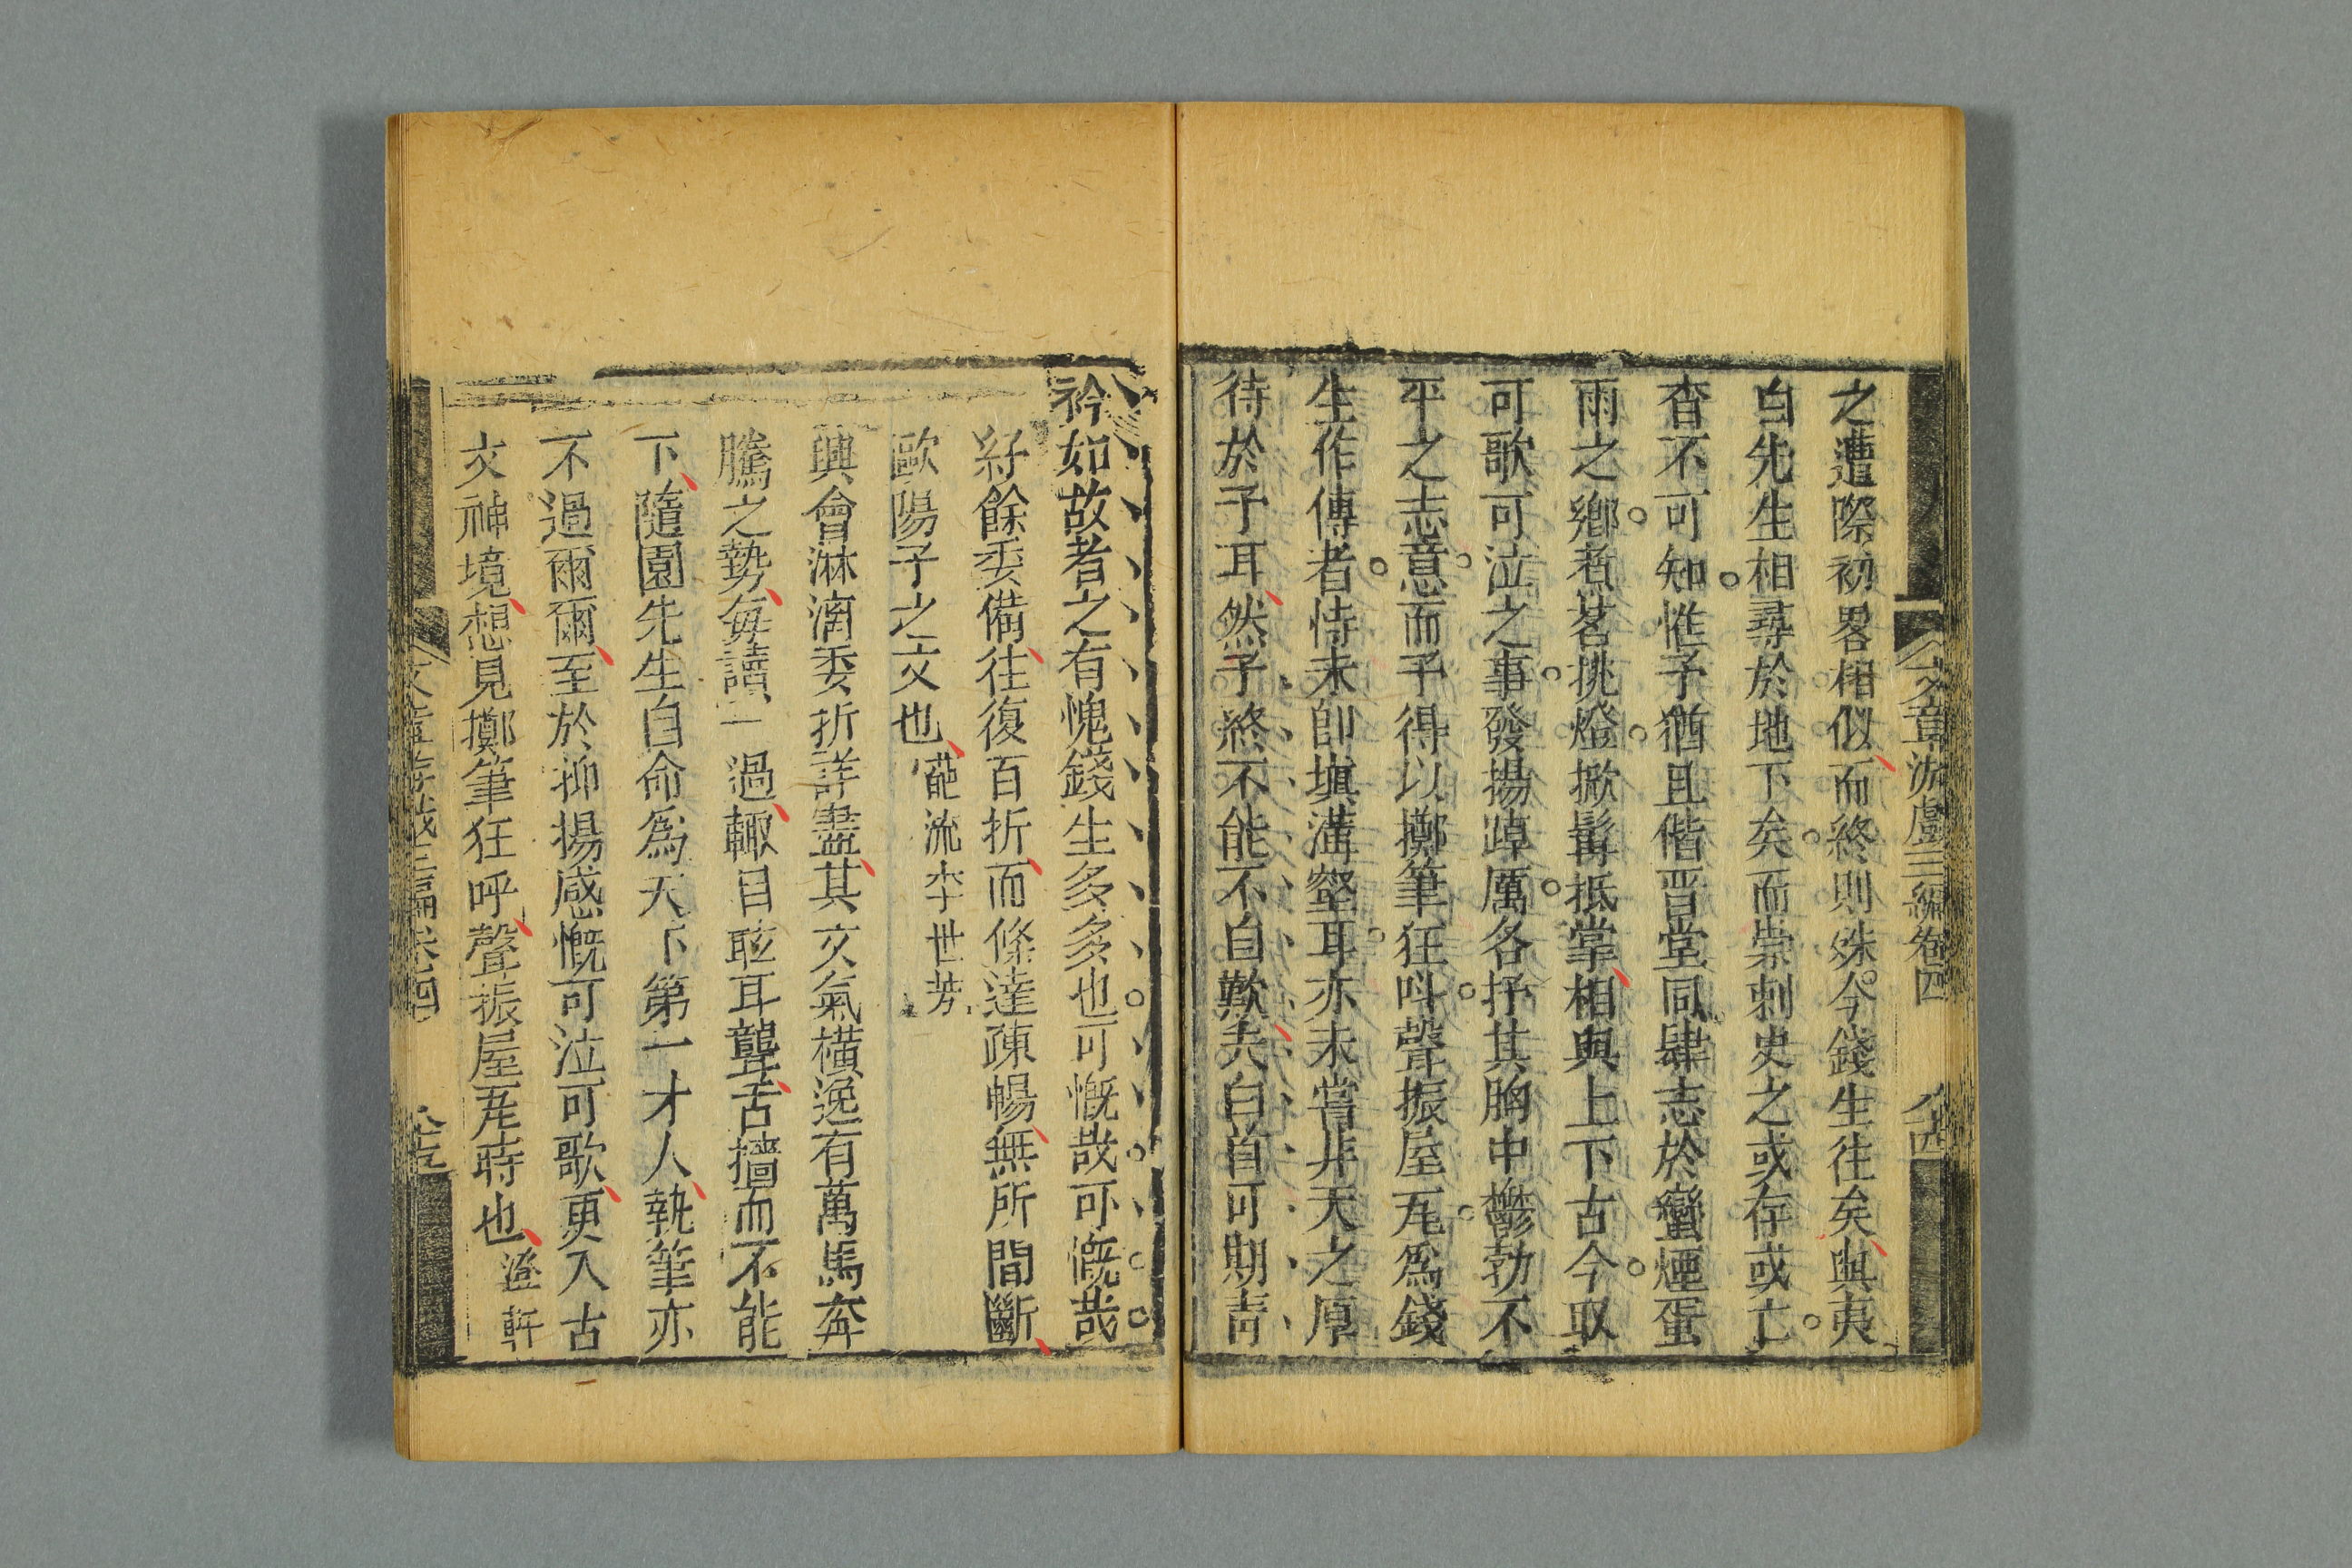 文章游戲三編卷四
之遭際初畧相似而終則殊今錢生往矣與夷
白先生相尋於地下矣而崇刺史之或存或亡
杳不可知惟予猶且偕晋堂同肆志於蠻煙蛋
雨之鄉煮茗挑燈掀髯抵掌相與上下古今取
可歌可泣之事發揚踔厲各抒其胸中鬱勃不
平之志意而予得以擲筆狂呌聲振屋瓦爲錢
生作傳者恃未卽塡溝壑耳亦未嘗非天之厚
待於予耳然予終不能不自歎夫白首可期靑
衿如故者之有愧錢生多多也可慨哉可慨哉
紆餘委備往復百折而條達疎暢無所間斷
歐陽子之文也 葩流李世芳
興會淋漓委折詳盡其文氣橫逸有萬馬奔
騰之勢每讀一過輙目眩耳聾舌撟而不能
下隨園先生自命爲天下第一才人執筆亦
不過爾爾至於抑揚感慨可泣可歌更入古
文神境想見擲筆狂呼聲振屋瓦時也 澄軒
文章游戲三編卷四